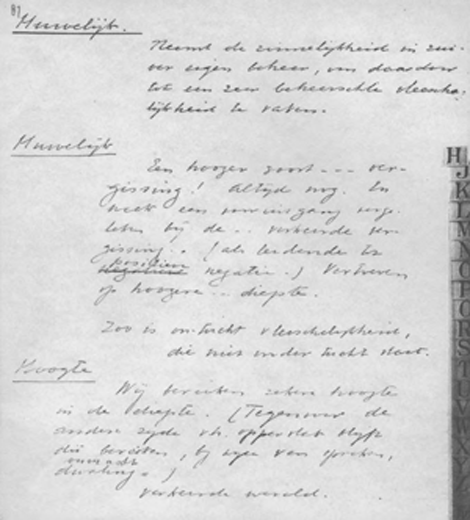 87
Huwelijk.
Neemt de zinnelijkheid in zui-
ver eigen beheer, om daardoor
tot een zeer beheerschte vleesche-
lijkheid te raken.
Huwelijk
Een hooger soort --- ver-
gissing! Altijd nog. En
een vooruitgang verge-
leken bij de .. verkeerde ver-
gissing. (als leidende te
positieve
negatieve negatie.) Verkeeren
op hoogere .. diepte.
Zoo is on-tucht vleeschelijkheid,
die niet onder tucht staat.
Hoogte
Wij bereiken zekere hoogte
in de diepte. (Tegenover de
andere zijde v.h. oppervlak blijft
dit bereiken, bij wijze van spreken,
onmacht
dwaling.)
verkeerde wereld.
H
J
K
L
M
N
O
P
Q
R
S
T
U
V
W
X
Y
Z